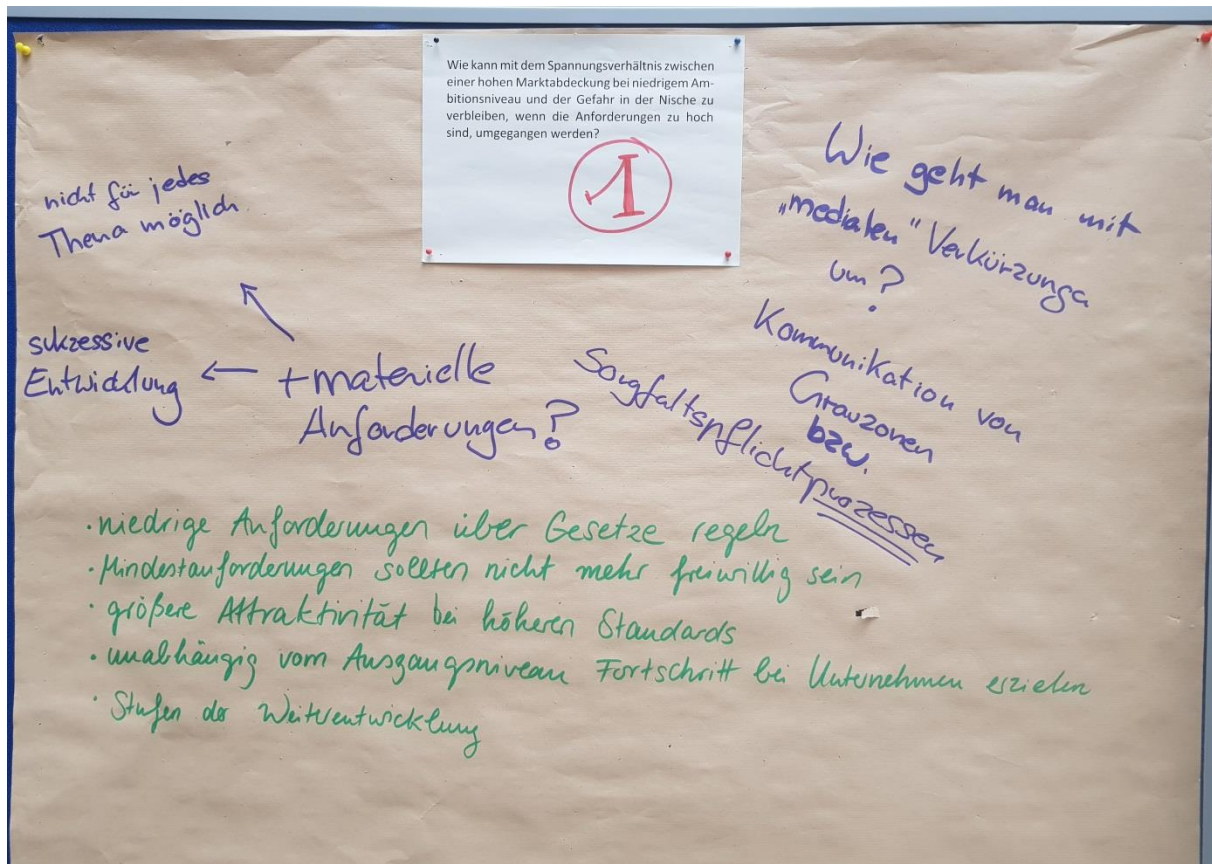 Wie kann mit dem Spannungsverhältnis zwischen
einer hohen Marktabdeckung bei niedrigem Am-
bitionsniveau und der Gefahr in der Nische zu
verbleiben, wenn die Anforderungen zu hoch
sind, umgegangen werden?
1
nicht für jedes
Thema möglich
sukzessive
Entwicklung
+materielle
Anforderungen?
Wie geht man mit
„medialen" Verkürzunga
um?
Kommunikation von
Grauzonen
bzw.
Sorgfaltspflichtprozessen
· niedrige Anforderungen über Gesetze regeln
· Mindestanforderungen sollten nicht mehr freiwillig sein
· größere Attraktivität bei höheren Standards
· unabhängig vom Ausgangsniveau Fortschritt bei Unternehmen erzielen
· Stufen der Weiterentwicklung